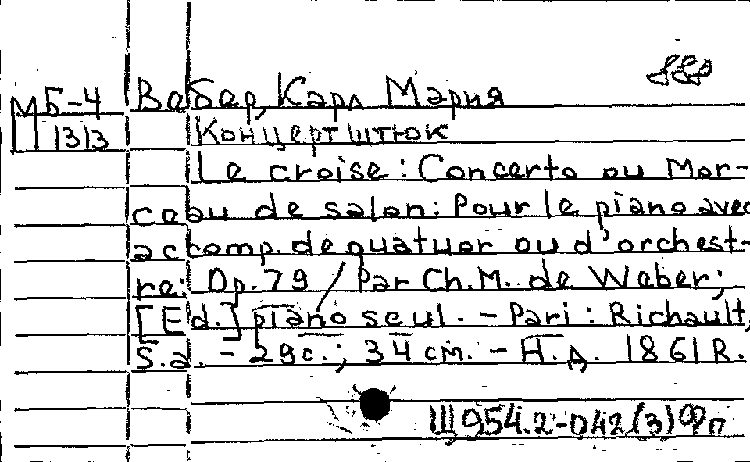 МБ-4 Вебер, Карл Мария
П 1313 Концертштюк
Le croise: Concerto ou Mor-
ceau de salon: Pour le piano avec
accomp. de quatuor ou d'orchest-
re: Op. 79 / Par Ch. M. de Weber;
[Ed.] piano seul. - Pari: Richault,
S.a. - 29c.; 34 cm. - Н.д. 1861 R.
Щ954.2-042(3)Фп